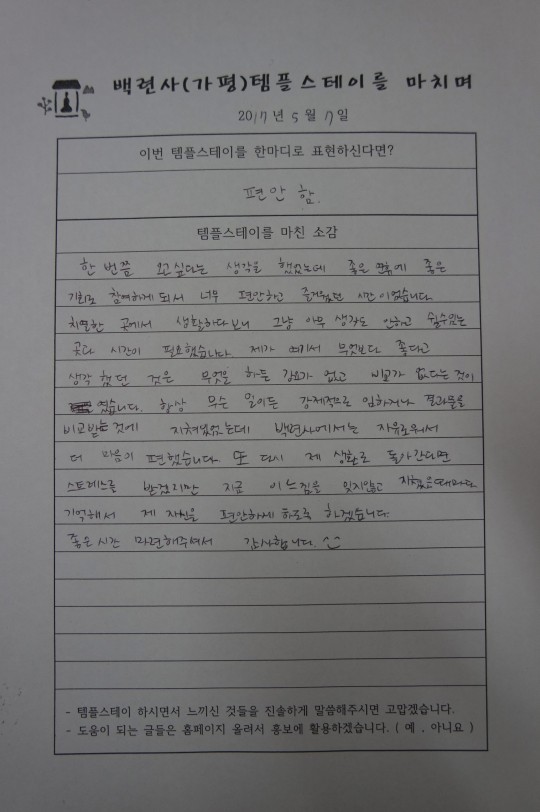 백련사(가평)템플스테이를 마치며
2017년 5월 17일
이번 템플스테이를 한마디로 표현하신다면?
편안함.
템플스테이를 마친 소감
한 번쯤 오고싶다는 생각을 했었는데 좋은 좋은
기회로 참여하게 되서 너무 편안하고 즐거웠던 시간이었습니다.
치열한 곳에서 생활하다보니 그냥 아무 생각도 안하고 쉴수있는
곳과 시간이 필요했습니다. 제가 여기서 무엇보다 좋다고
생각했던 것은 무엇을 하든 강요가 없고 비교가 없다는 것이
었습니다. 항상 무슨 일이든 강제적으로 임하거나 결과물을
비교받는 것에 지쳐있었는데 백련사에서는 자유로워서
더 마음이 편했습니다. 또 다시 제 생활로 돌아간다면
스트레스를 받겠지만 지금 이느낌을 잊지않고 지쳤을때마다
기억해서 제 자신을 편안하게 하도록 하겠습니다.
좋은시간 마련해주셔서 감사합니다. ^^
- 템플스테이 하시면서 느끼신 것들을 진솔하게 말씀해주시면 고맙겠습니다.
- 도움이 되는 글들은 홈페이지 올려서 홍보에 활용하겠습니다. ( 예 . 아니요 )